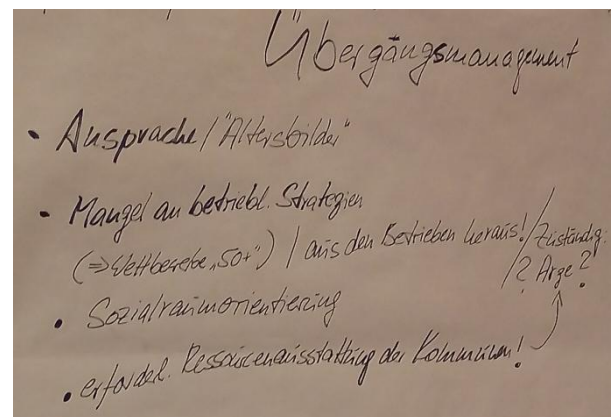 Übergangsmanagement
• Ansprache / "Altersbilder"
• Mangel an betriebl. Strategien
(⇒ Wettbewerbe „50+“) / aus den Betrieben heraus! / Zuständig:
? Arge?
• Sozialraumorientierung
• erforderl. Ressourcenausstattung der Kommunen!